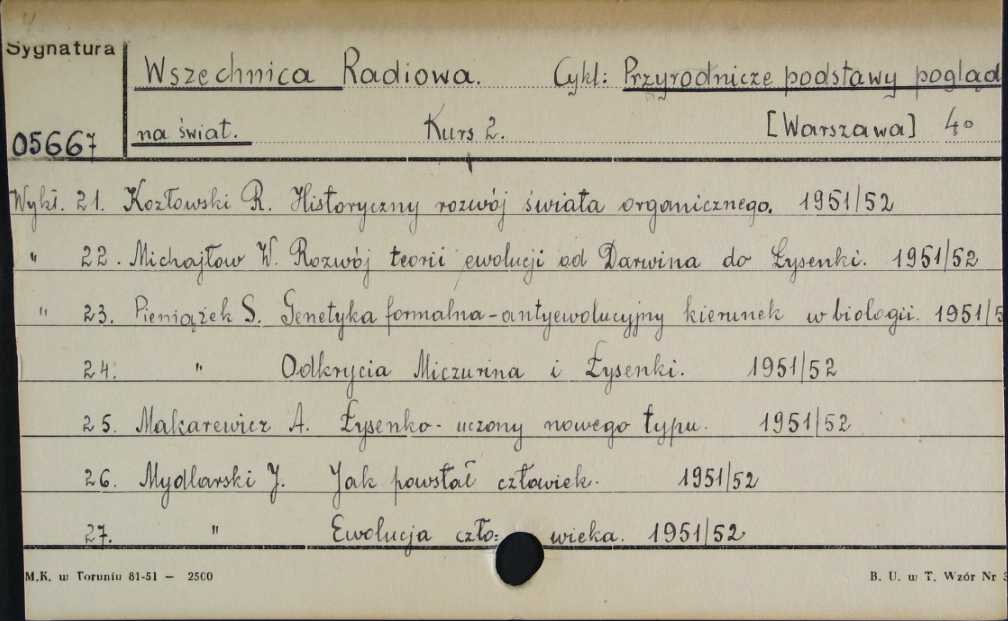 Sygnatura
Wszechnica Radiowa. Cykl: Przyrodnicze podstawy pogląd
05667 na świat. Kurs 2. [Warszawa] 4°
Wykł. 21. Kozłowski R. Historyczny rozwój świata organicznego. 1951/52
" 22. Michajłow W. Rozwój teorii ewolucji od Darwina do Łysenki. 1951/52
" 23. Pieniążek S. Genetyka formalna-antyewolucyjny kierunek w biologii. 1951/5
24. " Odkrycia Miczurina i Łysenki. 1951/52
25. Makarewicz A. Łysenko - uczony nowego typu. 1951/52
26. Mydlarski J. Jak powstał człowiek. 1951/52
27. " Ewolucja czło: wieka. 1951/52
M.K. w Toruniu 81-51 — 2500 B. U. w T. Wzór Nr 3